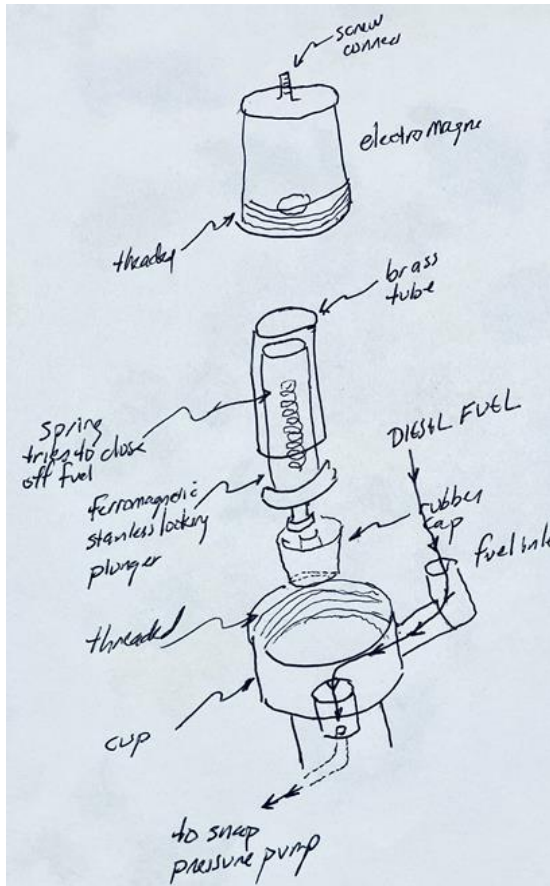 screw
connec
electromagne
threaded
brass
tube
Spring
tries to close
off fuel
DIESEL FUEL
ferromagnetic
stainless looking
plunger
rubber
cap
fuel inle
threaded
cup
to
pressure pump